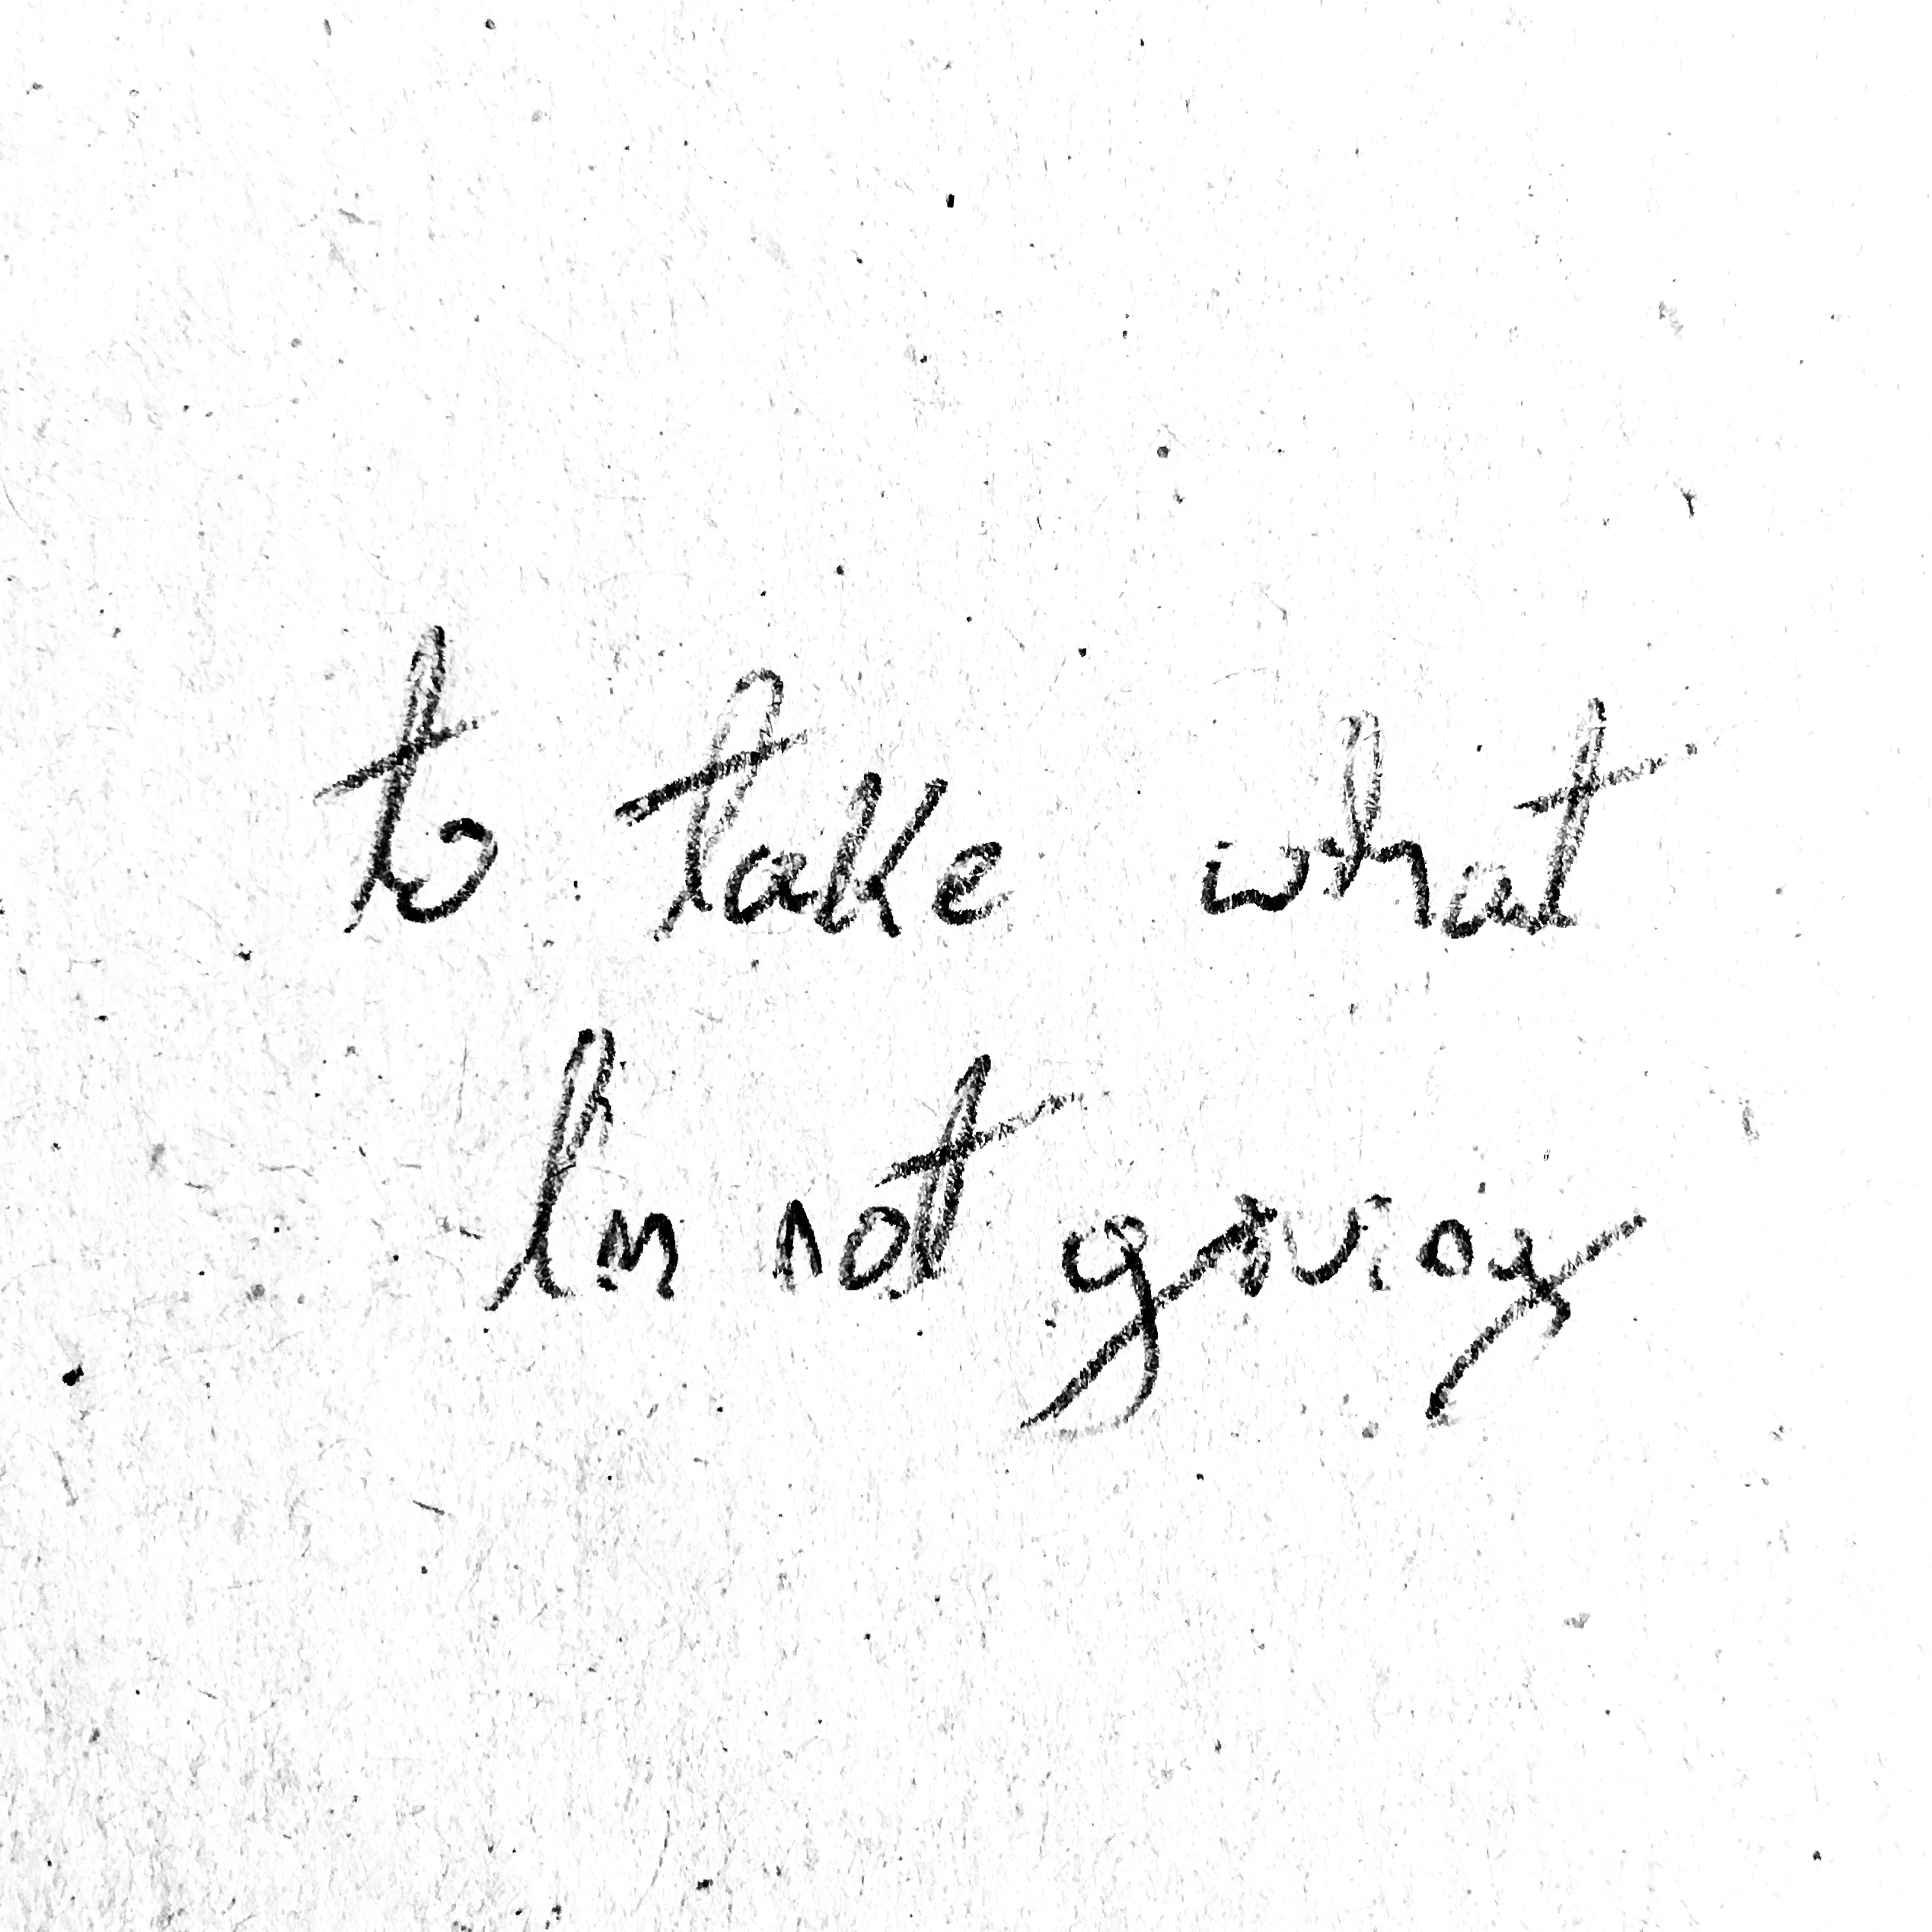 to take what
I'm not giving